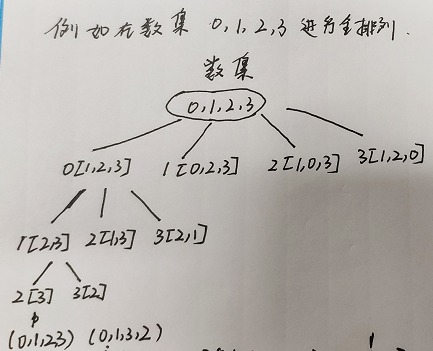 例如在数集 0,1,2,3 进行全排列.
数集
0,1,2,3
0[1,2,3] 1[0,2,3] 2[1,0,3] 3[1,2,0]
1[2,3] 2[1,3] 3[2,1]
2[3] 3[2]
(0,1,2,3) (0,1,3,2)